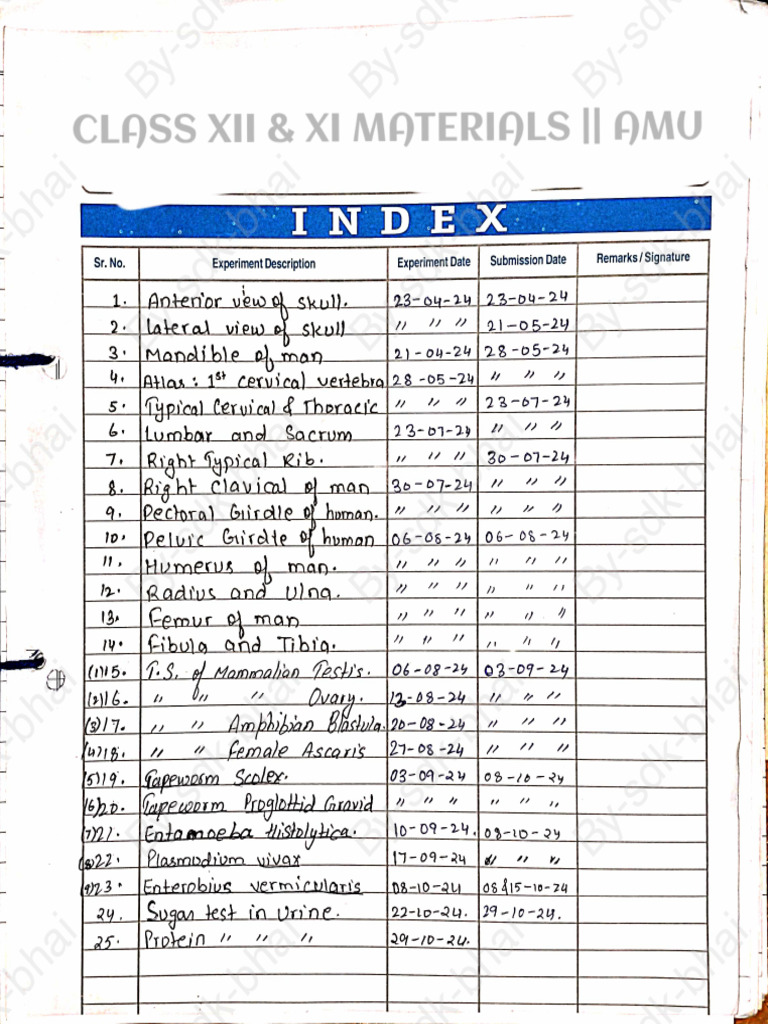 CLASS XII & XI MATERIALS || AMU
INDEX
Sr. No. Experiment Description Experiment Date Submission Date Remarks / Signature
1. Anterior view of skull. 23-04-24 23-04-24
2. lateral view of skull " " " 21-05-24
3. Mandible of man 21-04-24 28-05-24
4. Atlas: 1st cervical vertebra 28-05-24 " " "
5. Typical Cervical & Thoracic " " " 23-07-24
6. Lumbar and Sacrum 23-07-24 " " "
7. Right Typical Rib. " " " 30-07-24
8. Right Clavical of man 30-07-24 " " "
9. Pectoral Girdle of human. " " " " " "
10. Pelvic Girdle of human 06-08-24 06-08-24
11. Humerus of man. " " " " " "
12. Radius and Ulna. " " " " " "
13. Femur of man " " " " " "
14. Fibula and Tibia. " " " " " "
(1)15. T.S. of Mammalian Testis. 06-08-24 03-09-24
(2)16. " " " Ovary. 13-08-24 " " "
(3)17. " " Amphibian Blastula. 20-08-24 " " "
(4)18. " " female Ascaris 27-08-24 " " "
(5)19. Tapeworm Scolex. 03-09-24 08-10-24
(6)20. Tapeworm Proglottid Gravid " " " " " "
(7)21. Entamoeba Histolytica. 10-09-24. 08-10-24
(8)22. Plasmodium vivax 17-09-24 " " "
(9)23. Enterobius vermicularis 08-10-24 08&15-10-24
24. Sugar test in Urine. 22-10-24. 29-10-24.
25. Protein " " " 29-10-24.
By-sdk-bhai